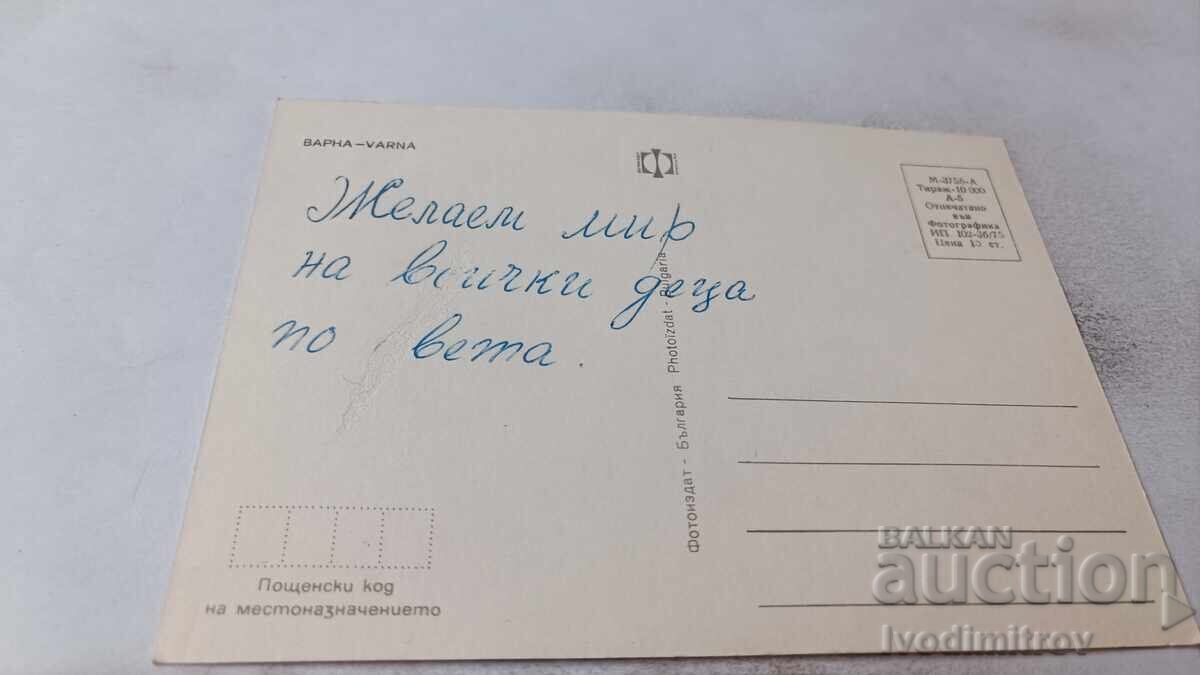 ВАРНА – VARNA
Желаем мир
на всички деца
по вета.
Фотоиздат - България Photoizdat - Bulgaria
М-3756-А
Тираж-10 000
А-5
Отпечатано
във
Фотографика
ИП. 102-36/75
Цена 15 ст.
Пощенски код
на местоназначението
BALKAN
auction
Ivodimitrov